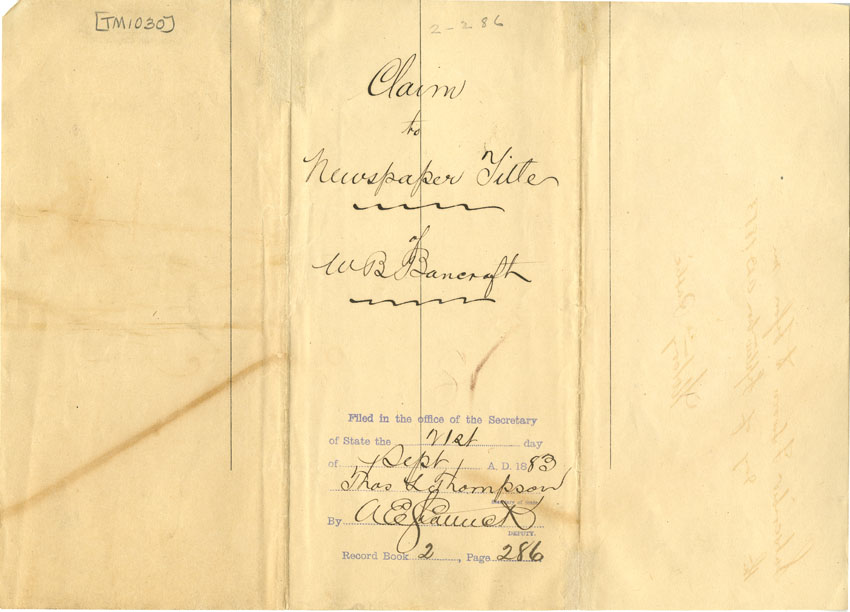 [TM1030]
2-286
Claim
to
Newspaper Title
of
W B Bancroft
Filed in the office of the Secretary
of State the 21st day
of Sept A. D. 1883
Thos L Thompson
Secretary of State
By A E
DEPUTY.
Record Book 2, Page 286